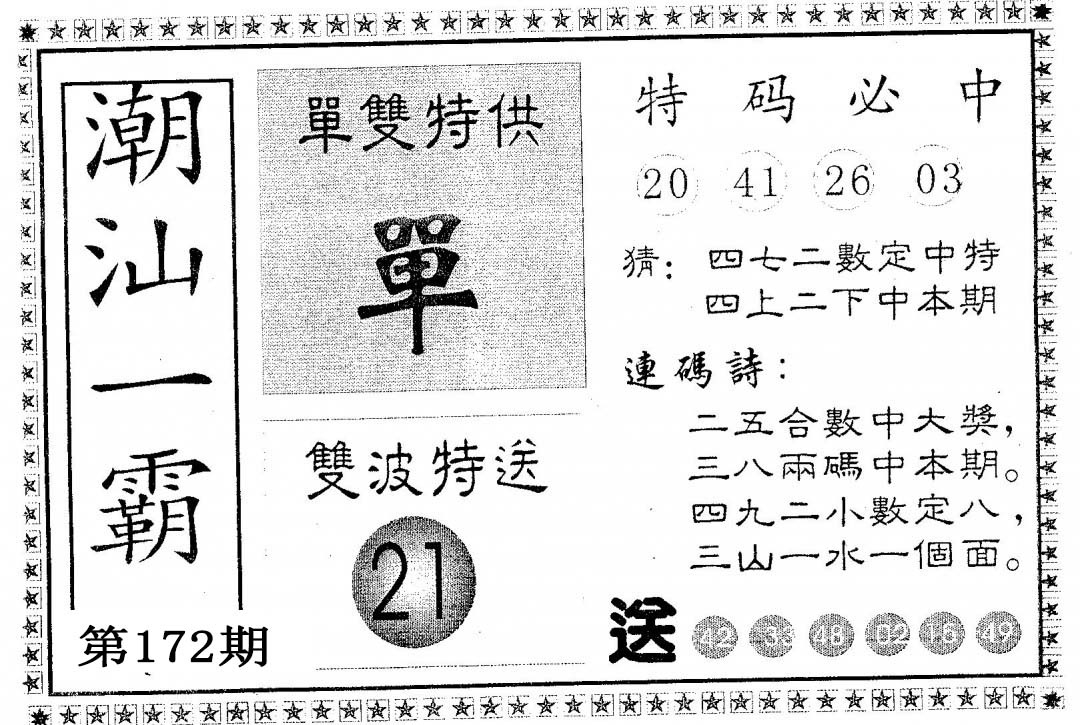 潮汕一霸
第172期
單雙特供
單
雙波特送
21
特码必中
20 41 26 03
猜：四七二數定中特
四上二下中本期
連碼詩：
二五合數中大獎，
三八兩碼中本期。
四九二小數定八，
三山一水一個面。
送 42 33 48 02 49